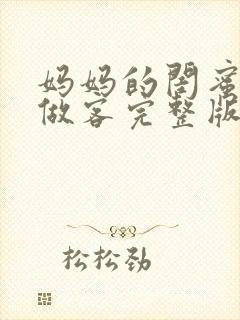 妈妈的闺蜜
做客完整版
松松劲